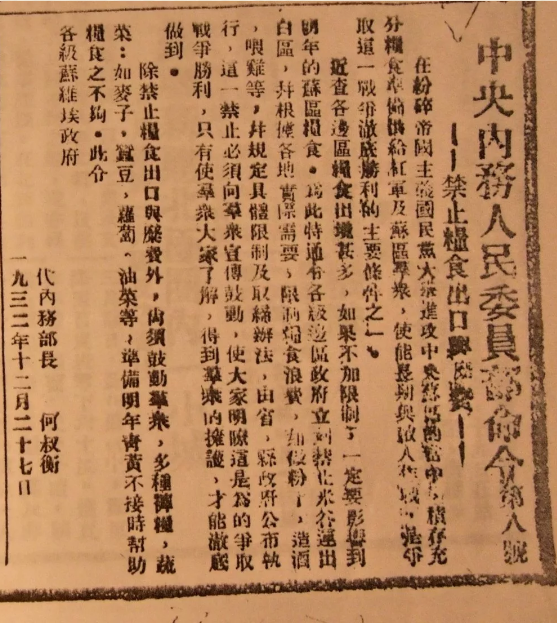 中央內務人民委員部命令第八號
——禁止糧食出口與糜費——
在粉碎帝國主義國民黨大舉進攻中央蘇區的當中，積存充
分糧食準備供給紅軍及蘇區羣衆，使能長期與敵人作戰，是爭
取這一戰爭澈底勝利的主要條件之一。
近查各邊區糧食出境甚多，如果不加限制，一定要影響到
明年的蘇區糧食。爲此特通令各級邊區政府立刻禁止米谷運出
白區，幷根據各地實際需要，限制糧食浪費，如做粉干，造酒
，喂雞等，幷規定具體限制及取締辦法，由省，縣政府公布執
行，這一禁止必須向羣衆宣傳鼓動，使大家明瞭這是為的爭取
戰爭勝利，只有使羣衆大家了解，得到羣衆的擁護，才能澈底
做到。
除禁止糧食出口與糜費外，尙須鼓動羣衆，多種雜糧，蔬
菜：如麥子，蠶豆，蘿蔔，油菜等，準備明年靑黃不接時幫助
糧食之不夠。此令
各級蘇維埃政府
代內務部長　何叔衡
一九三二年十二月二十七日